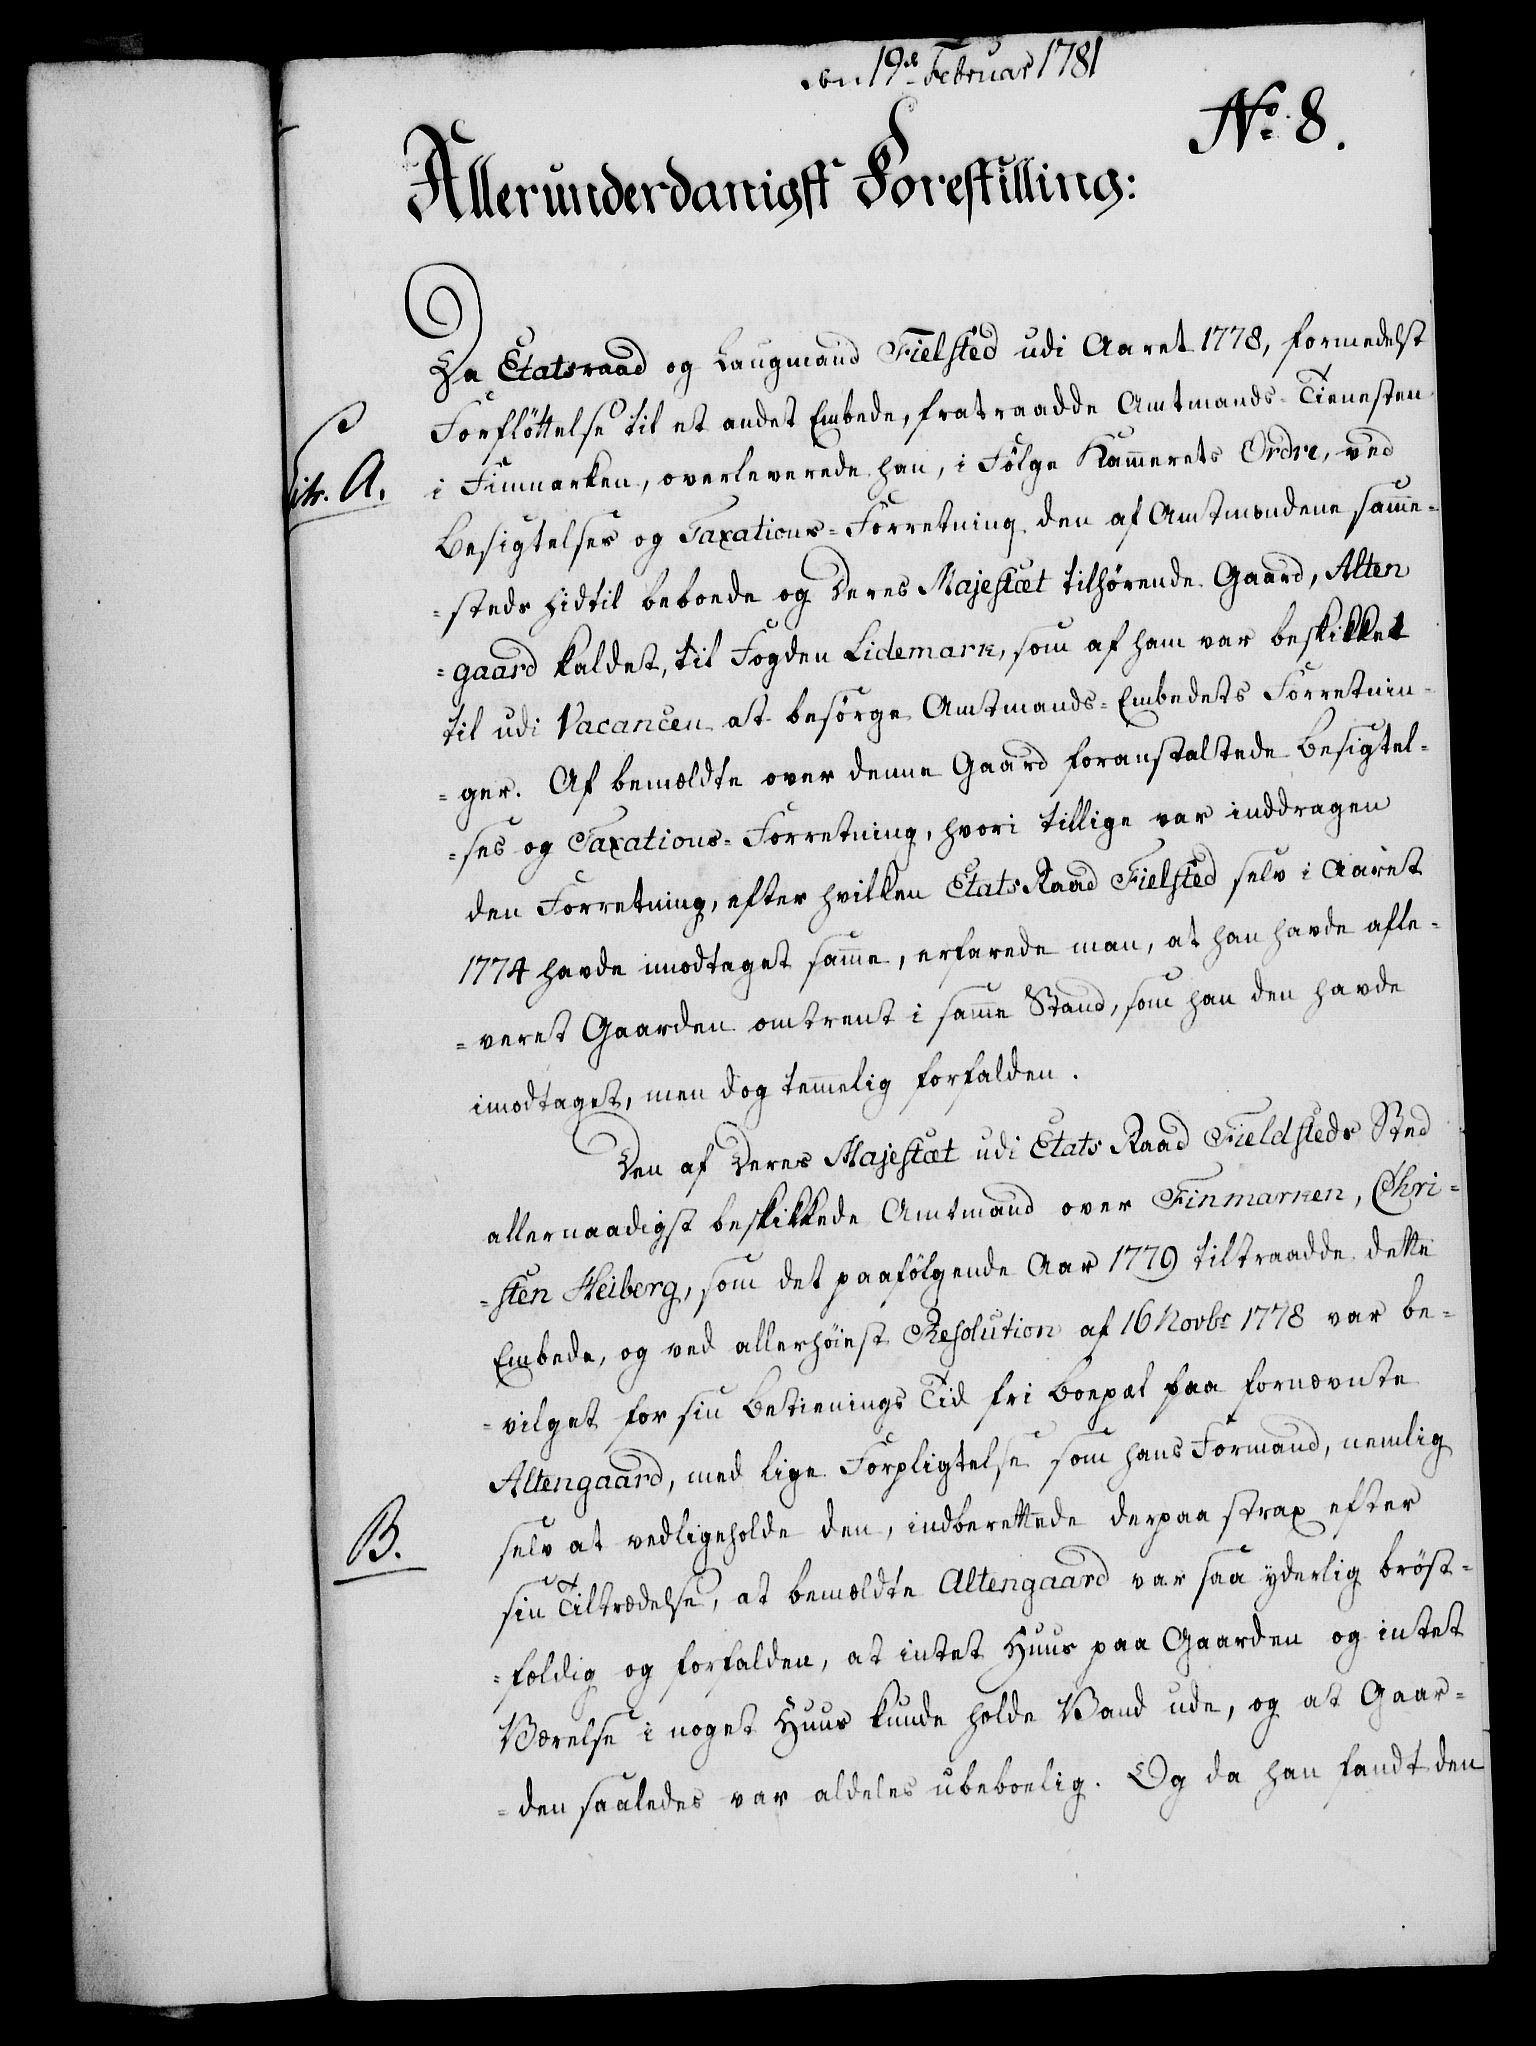 den 19de Februar 1781
No. 8.
Allerunderdanigst Forestilling:
Da Etatsraad og Laugmand Fielsted udi Aaret 1778, formedelst
Forflöttelse til et andet Embede, fratraadde Amtmands-Tienesten
Litr. A.
i Finmarken, overleverede han, i Fölge Kammerets Ordre, ved
Besigtelses og Taxations-Forretning den af Amtmændene samme-
-steds hidtil beboede og Deres Majestæt tilhörende Gaard, Alten
-gaard kaldet, til Fogden Lidemark, som af ham var beskikket
til udi Vacancen at besörge Amtmands-Embedets Forretnin-
-ger. Af bemældte over denne Gaard foranstaltede Besigtel-
-ses og Taxations-Forretning, hvori tillige var inddragen
den Forretning, efter hvilken Etats Raad Fielsted selv i Aaret
1774 havde imodtaget samme, erfarede man, at han havde afle-
-veret Gaarden omtrent i samme Stand, som han den havde
imodtaget, men dog temmelig forfalden.
Den af Deres Majestæt udi Etats Raad Fieldsteds Sted
allernaadigst beskikkede Amtmand over Finmarken, Chri-
-sten Heiberg, som det paafölgende Aar 1779 tiltraadde dette
Embede, og ved allerhöiest Resolution af 16 Novbr 1778 var be-
-vilget for sin Betienings Tid fri Boepæl paa fornævnte
Altengaard, med lige Forpligtelse som hans Formand, nemlig
B.
selv at vedligeholde den, indberettede derpaa strax efter
sin Tiltrædelse, at bemældte Altengaard var saa yderlig bröst-
-fældig og forfalden, at intet Huus paa Gaarden og intet
Værelse i noget Huus kunde holde Vand ude, og at Gaar-
-den saaledes var aldeles ubeboelig. Og da han fandt den